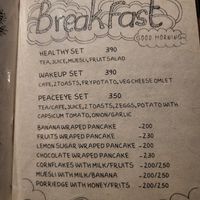 Breakfast
GOOD MORNING
HEALTHY SET 390
TEA, JUICE, MUESLI, FRUIT SALAD
WAKEUP SET 390
CAFE, 2 TOASTS, FRY POTATO, VEG CHEESE OMLET
PEACEEYE SET 350
TEA/CAFE, JUICE, 2 TOASTS, 2 EGGS, POTATO WITH
CAPSICUM TOMATO, ONION/GARLIC
BANANA WRAPED PANCAKE -200
FRUITS WRAPED PANCAKE -230
LEMON SUGAR WRAPED PANCAKE -200
CHOCOLATE WRAPED PANCAKE -230
CORNFLAKES WITH MILK/FRUITS -200/250
MUESLI WITH MILK/BANANA -200/250
PORRIEDGE WITH HONEY/FRITS -200/250